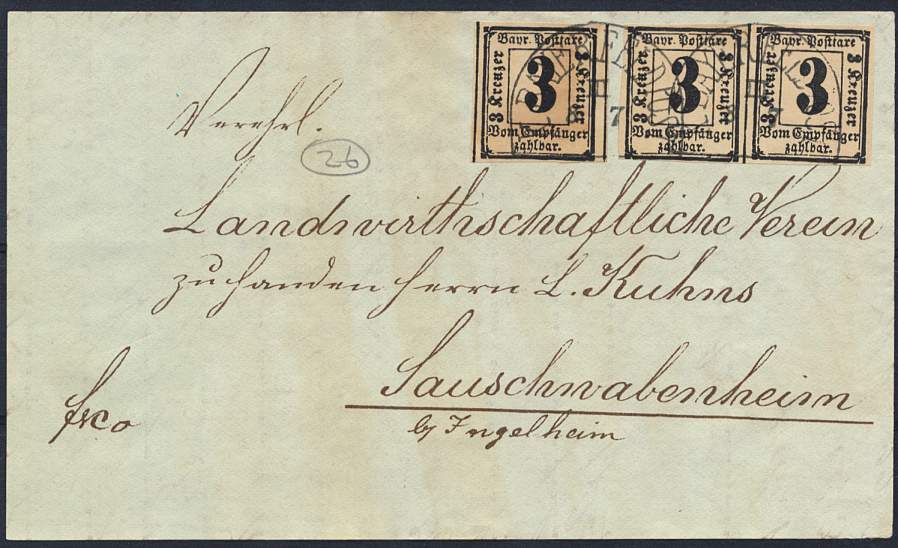 Bayr. Posttaxe
3 Kreuzer
3
3 Kreuzer
Vom Empfänger
zahlbar.
Bayr. Posttaxe
3 Kreuzer
3
3 Kreuzer
Vom Empfänger
zahlbar.
Bayr. Posttaxe
3 Kreuzer
3
3 Kreuzer
Vom Empfänger
zahlbar.
Verehrl.
26
Landwirthschaftliche Verein
zu Handen Herrn L. Kuhns
Sauschwabenheim
by Ingelheim
frco